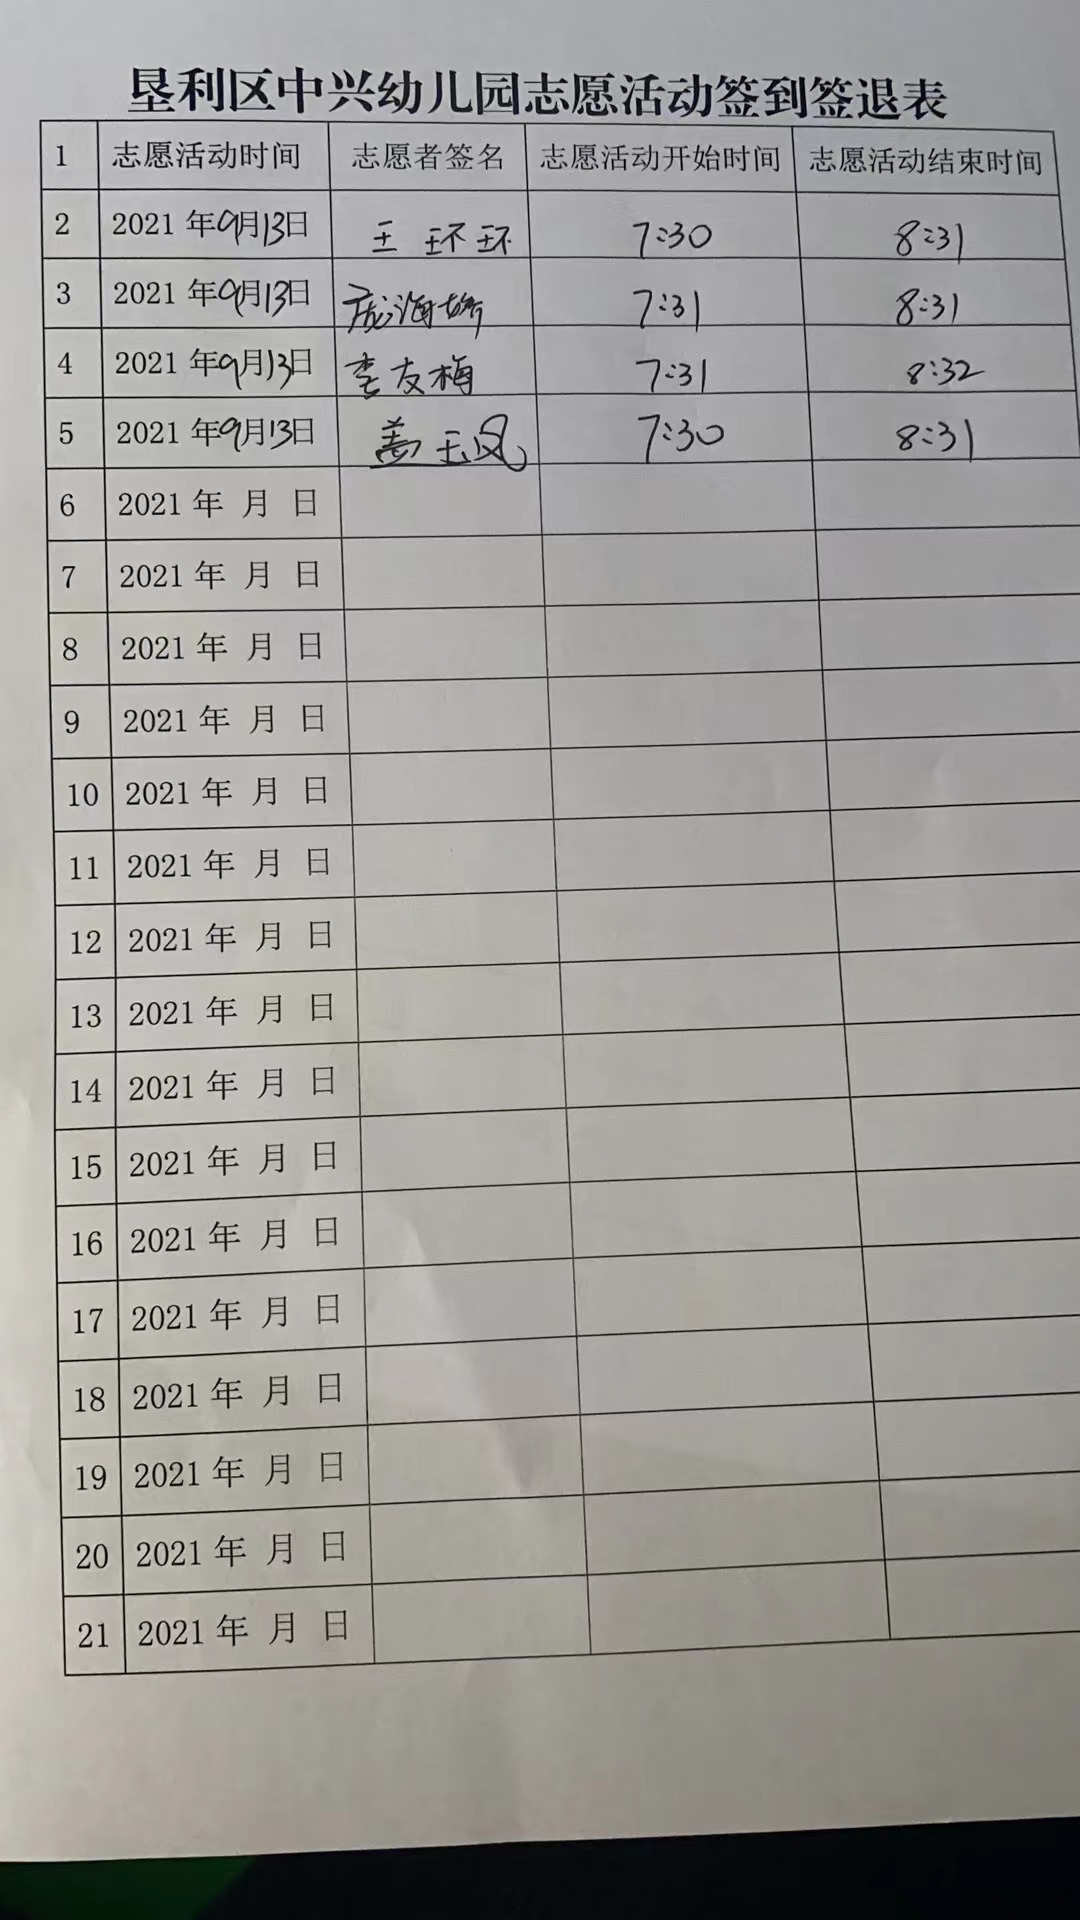 垦利区中兴幼儿园志愿活动签到签退表
1 志愿活动时间 志愿者签名 志愿活动开始时间 志愿活动结束时间
2 2021年9月13日 王环环 7:30 8:31
3 2021年9月13日 庞海娇 7:31 8:31
4 2021年9月13日 李友梅 7:31 8:32
5 2021年9月13日 盖玉凤 7:30 8:31
6 2021年 月 日
7 2021年 月 日
8 2021年 月 日
9 2021年 月 日
10 2021年 月 日
11 2021年 月 日
12 2021年 月 日
13 2021年 月 日
14 2021年 月 日
15 2021年 月 日
16 2021年 月 日
17 2021年 月 日
18 2021年 月 日
19 2021年 月 日
20 2021年 月 日
21 2021年 月 日